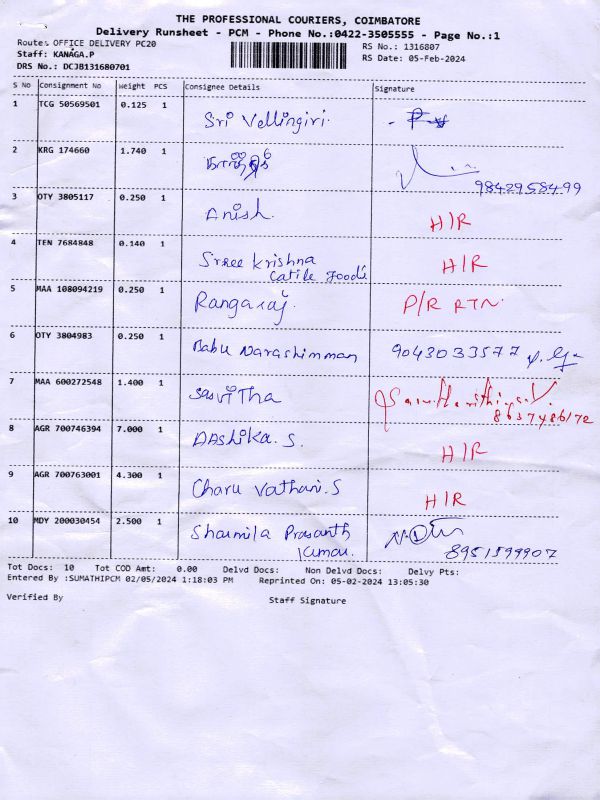 THE PROFESSIONAL COURIERS, COIMBATORE
Delivery Runsheet - PCM - Phone No.:0422-3505555 - Page No.:1
Route: OFFICE DELIVERY PC20
RS No.: 1316807
Staff: KANAGA.P
RS Date: 05-Feb-2024
DRS No.: DCJB131680701
S No Consignment No Weight PCS Consignee Details Signature
1 TCG 50569501 0.125 1 Sri Vellingiri
2 KRG 174660 1.740 1 9842958499
3 OTY 3805117 0.250 1 Anish. H/R
4 TEN 7684848 0.140 1 Sree Krishna H/R
Catlle Foods
5 MAA 108094219 0.250 1 Rangaraj. P/R RTN.
6 OTY 3804983 0.250 1 Babu Narashimman 9043033577
7 MAA 600272548 1.400 1 Savitha
8637486172
8 AGR 700746394 7.000 1 DAshika. S. H/R
9 AGR 700763001 4.300 1 Charu Vathani. S H/R
10 MDY 200030454 2.500 1 Sharmila Prasanth
Kumar. 8951599907
Tot Docs: 10 Tot COD Amt: 0.00 Delvd Docs: Non Delvd Docs: Delvy Pts:
Entered By :SUMATHIPCM 02/05/2024 1:18:03 PM Reprinted On: 05-02-2024 13:05:30
Verified By Staff Signature